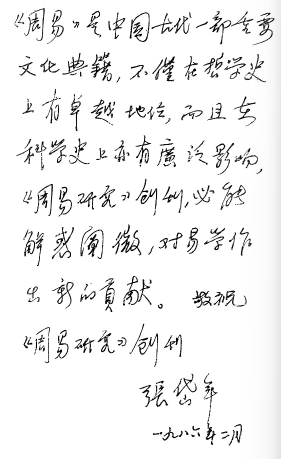 《周易》是中国古代一部重要
文化典籍，不僅在哲学史
上有卓越地位，而且在
科学史上亦有廣泛影响，
《周易研究》创刊，必能
解惑阐微，对易学作
出新的貢献。 敬祝
《周易研究》创刊
張岱年
一九八六年二月